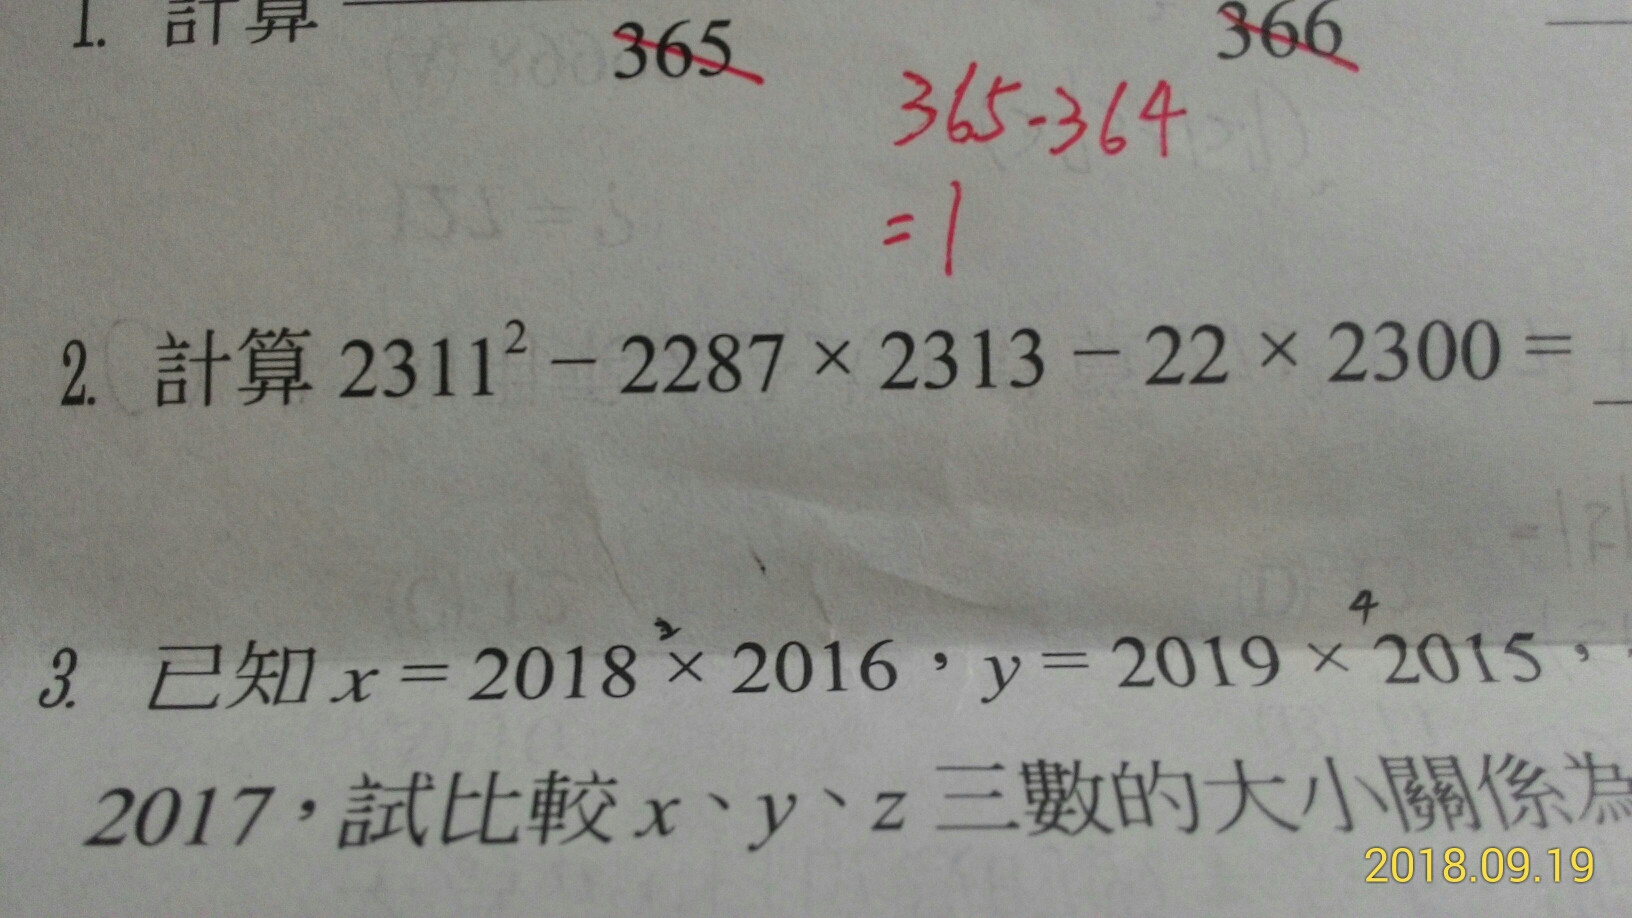 1. 計算
365
366
365-364
=1
2. 計算 2311² − 2287 × 2313 − 22 × 2300 =
2
4
3. 已知 x = 2018 × 2016，y = 2019 × 2015，
2017，試比較 x、y、z 三數的大小關係為
2018.09.19